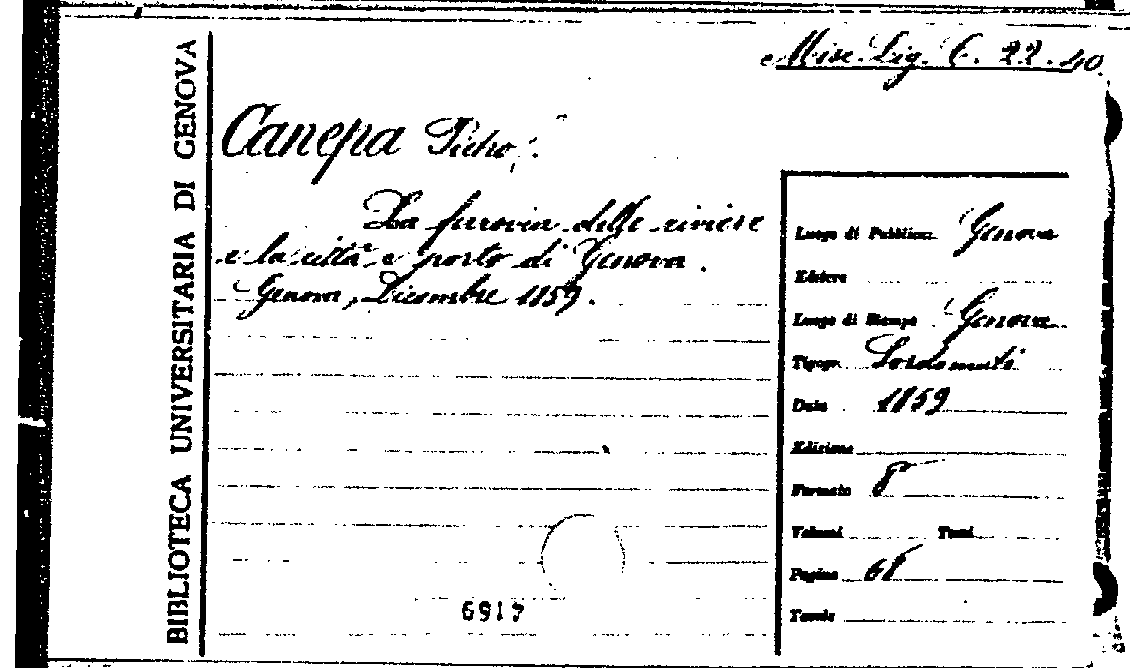 BIBLIOTECA UNIVERSITARIA DI GENOVA
Misc. Lig. C. 22. 40
Canepa Pietro.
La ferrovia delle riviere
e la città e porto di Genova.
Genova, Dicembre 1859.
Luogo di Pubblicaz. Genova
Editore
Luogo di Stampa Genova
Tipogr. Sordomuti
Data 1859
Edizione
Formato 8°
Volumi Tomi
Pagine 68
Tavole
6917